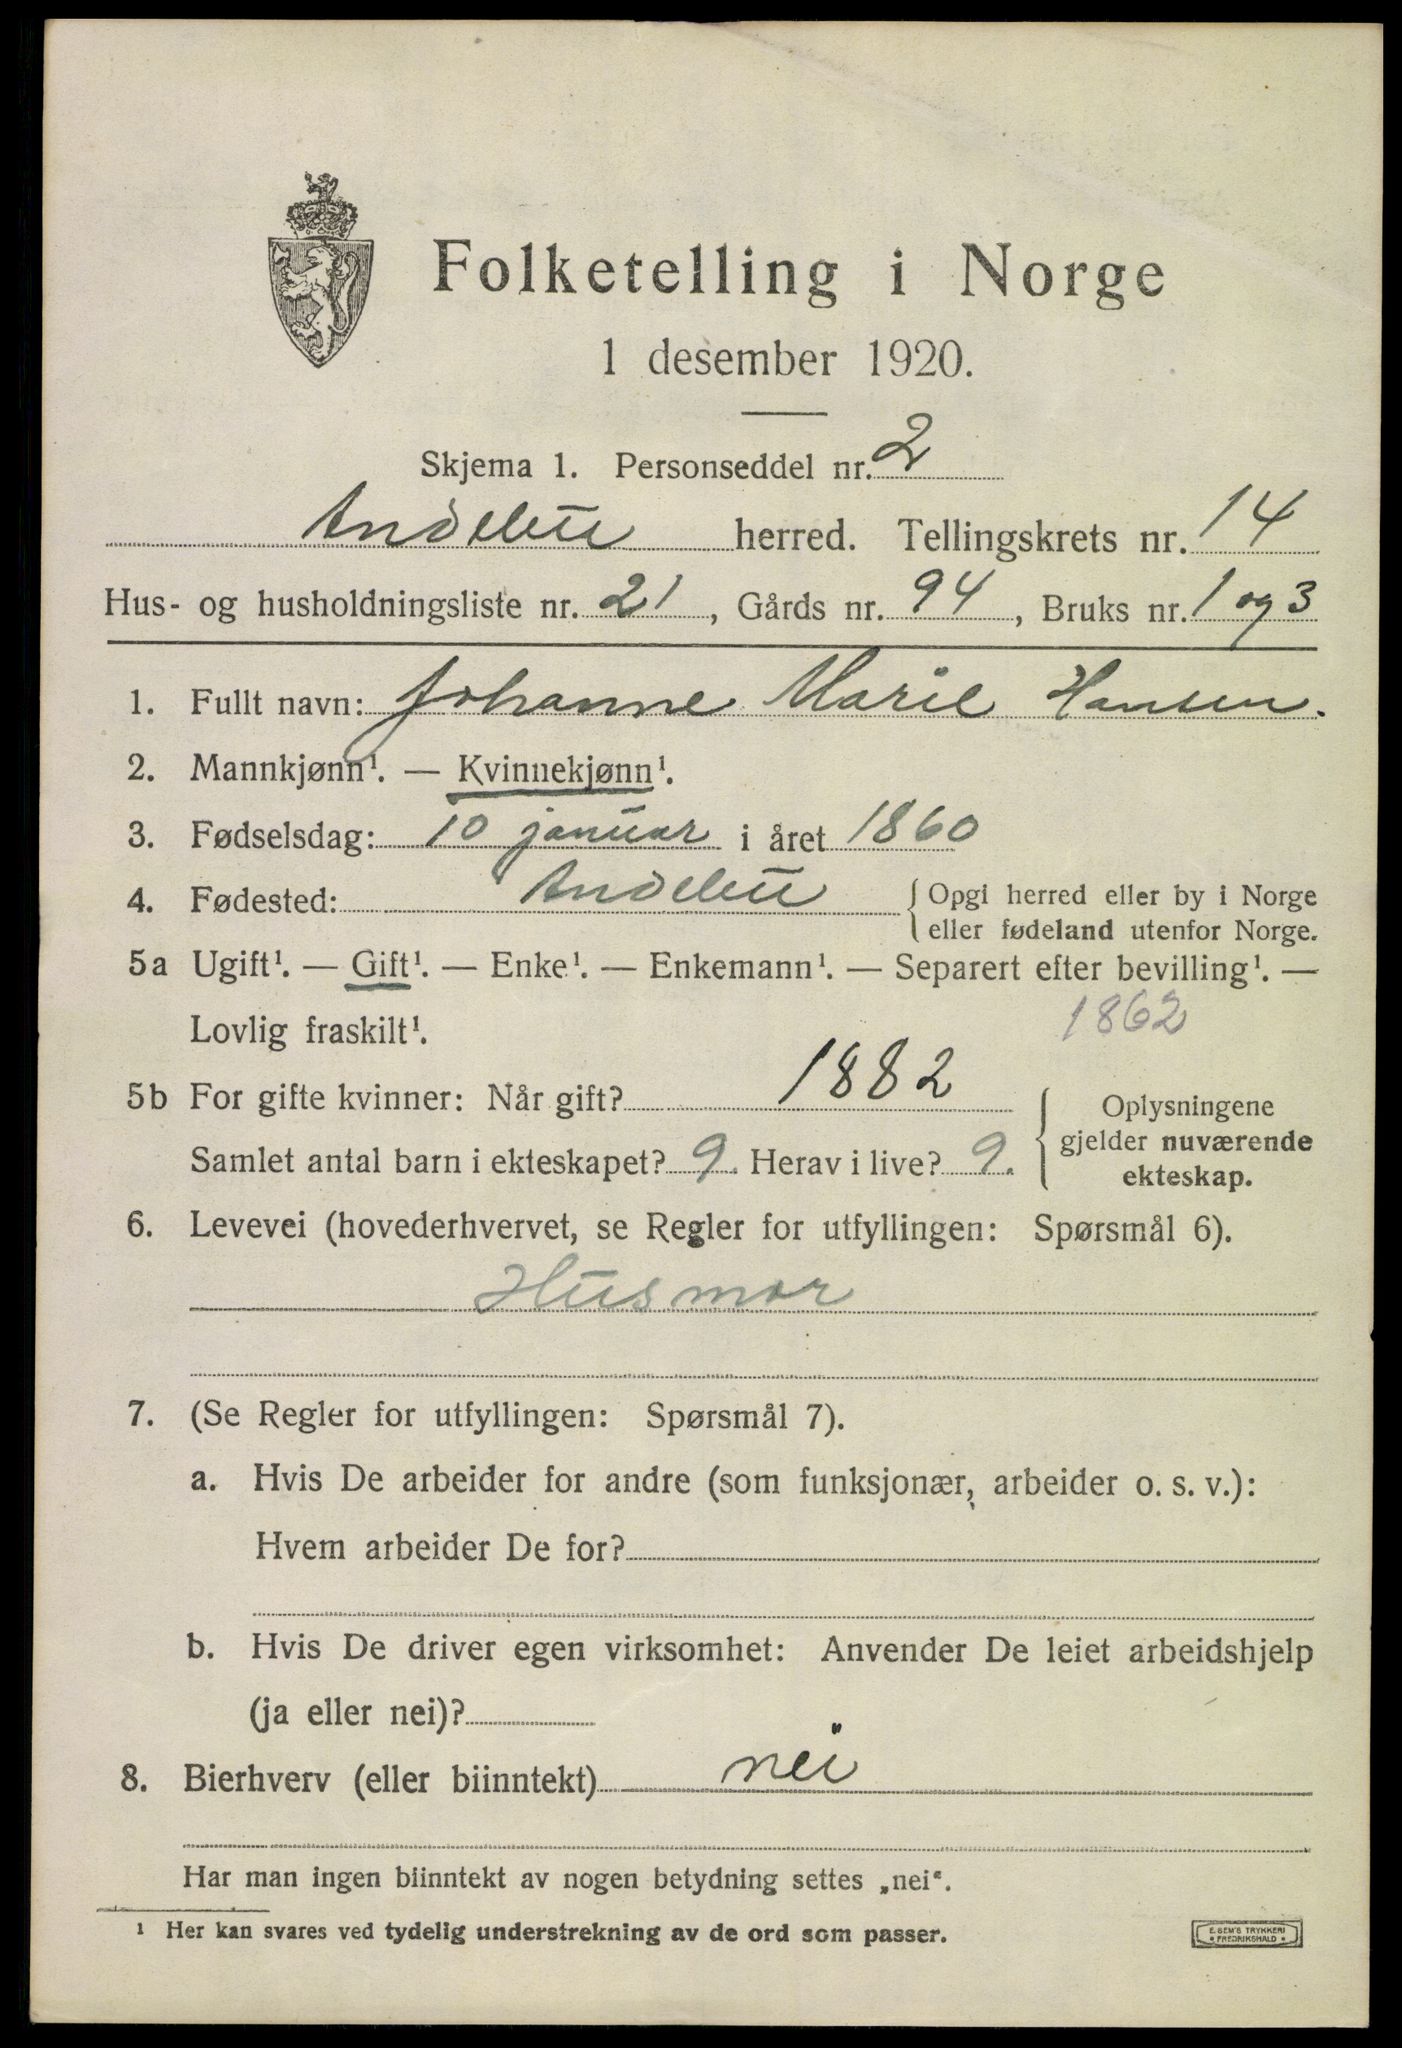 Folketelling i Norge
1 desember 1920.
Skjema 1. Personseddel nr. 2
Andebu herred. Tellingskrets nr. 14
Hus- og husholdningsliste nr. 21, Gårds nr. 94, Bruks nr. 1 og 3
1. Fullt navn: Johanne Marie Hansen.
2. Mannkjønn¹. — Kvinnekjønn¹.
3. Fødselsdag: 10 januar i året 1860
4. Fødested: Andebu { Opgi herred eller by i Norge
eller fødeland utenfor Norge.
5a Ugift¹. — Gift¹. — Enke¹. — Enkemann¹. — Separert efter bevilling¹. —
Lovlig fraskilt¹. 1862
5b For gifte kvinner: Når gift? 1882
Samlet antal barn i ekteskapet? 9. Herav i live? 9.
{ Oplysningene
gjelder nuværende
ekteskap.
6. Levevei (hovederhvervet, se Regler for utfyllingen: Spørsmål 6).
Husmor
7. (Se Regler for utfyllingen: Spørsmål 7).
a. Hvis De arbeider for andre (som funksjonær, arbeider o. s. v.):
Hvem arbeider De for?
b. Hvis De driver egen virksomhet: Anvender De leiet arbeidshjelp
(ja eller nei)?
8. Bierhverv (eller biinntekt) nei
Har man ingen biinntekt av nogen betydning settes „nei“.
¹ Her kan svares ved tydelig understrekning av de ord som passer.
E. SEM'S TRYKKERI
• FREDRIKSHALD •